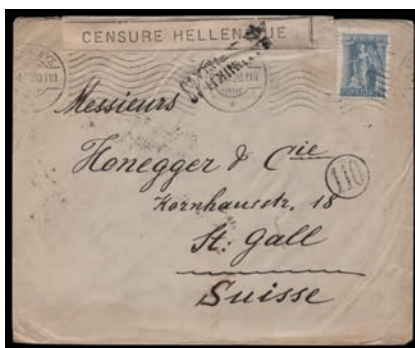 CENSURE HELLENIQUE
Messieurs
Honegger & Cie
110
Kornhausstr. 18
St. Gall
Suisse